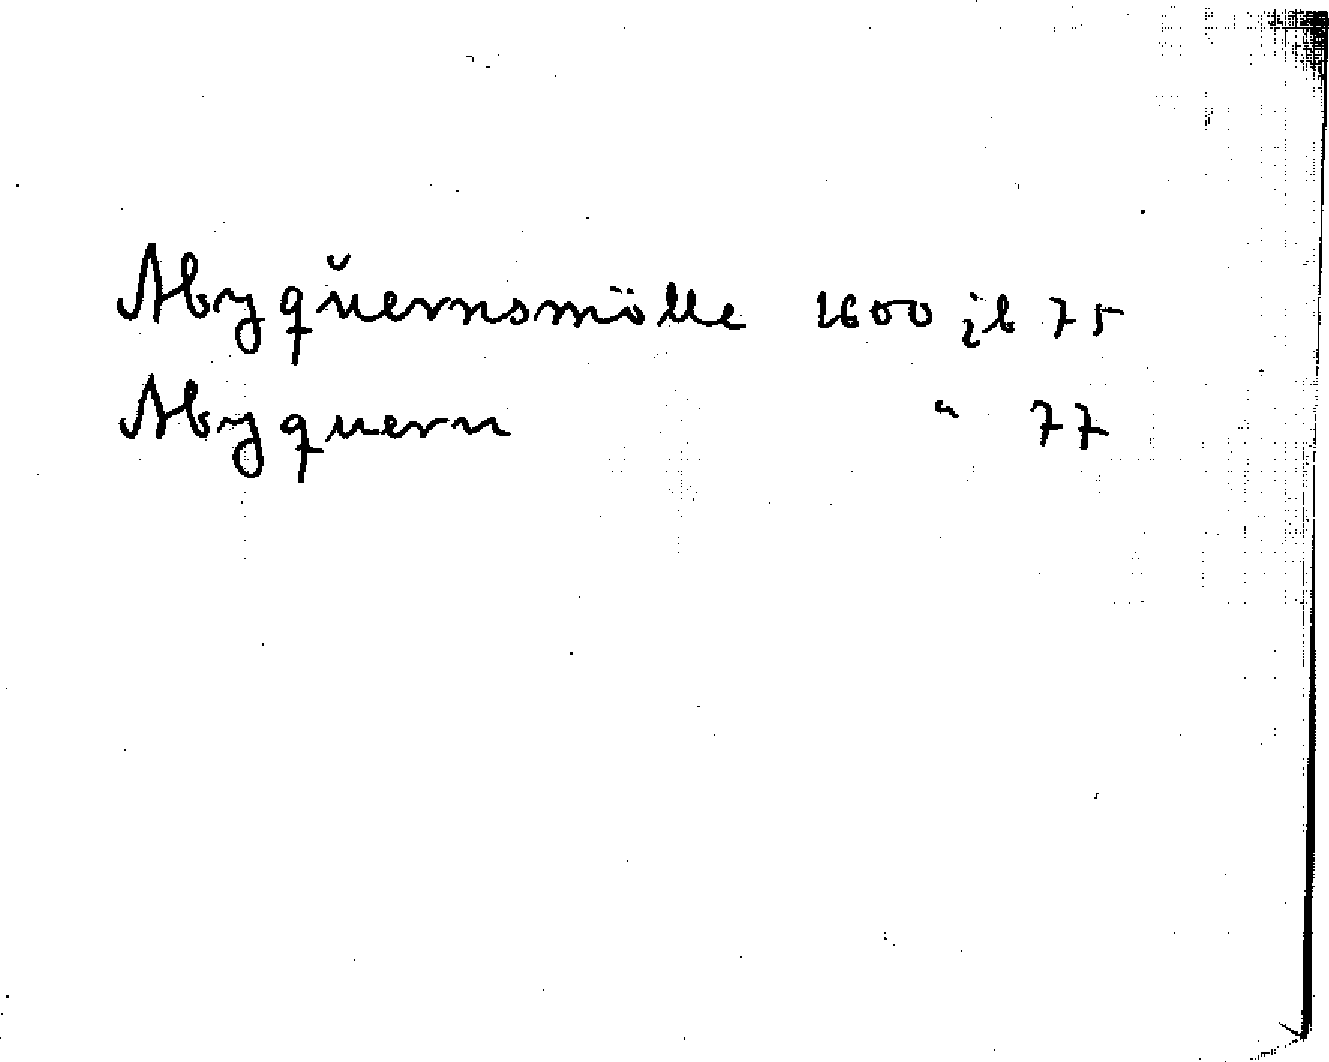 Abyqŭernsmölle 1600 jb 75
Abyquern " 77